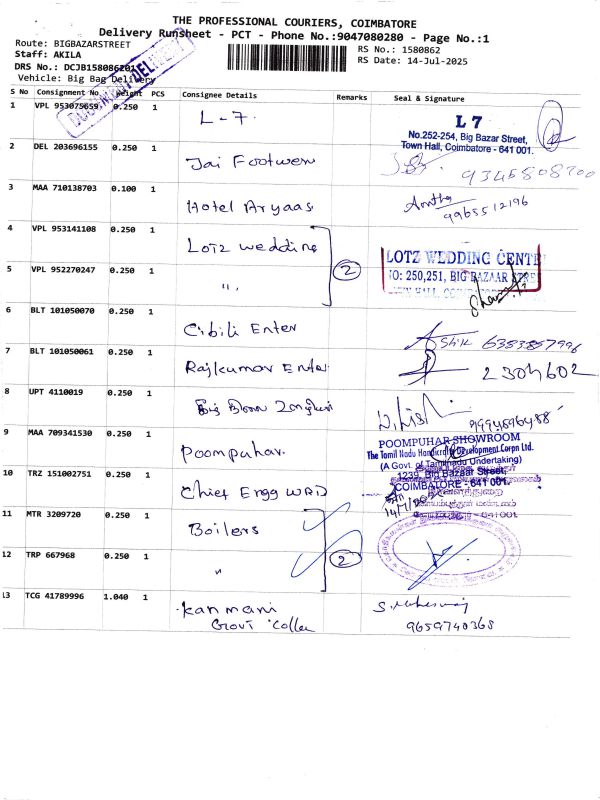 THE PROFESSIONAL COURIERS, COIMBATORE
Delivery Runsheet - PCT - Phone No.:9047080280 - Page No.:1
Route: BIGBAZARSTREET
Staff: AKILA
DRS No.: DCJB158086201
Vehicle: Big Bag Delivery
RS No.: 1580862
RS Date: 14-Jul-2025
DOCUMENT DELIVERY
S No Consignment No Weight PCS Consignee Details Remarks Seal & Signature
1 VPL 953075659 0.250 1 L-7.
L 7
No.252-254, Big Bazar Street,
Town Hall, Coimbatore - 641 001.
2 DEL 203696155 0.250 1 Jai Footwear
3 MAA 710138703 0.100 1 Hotel Aryaas
9965512196
4 VPL 953141108 0.250 1 Lotz wedding
5 VPL 952270247 0.250 1 "
2
LOTZ WEDDING CENTE
NO: 250,251, BIG BAZAAR STREE
6 BLT 101050070 0.250 1 Cibili Enter
Ashik 6383857996
7 BLT 101050061 0.250 1 Rajkumar Enter
2304602
8 UPT 4110019 0.250 1
9 MAA 709341530 0.250 1 Poompuhar
POOMPUHAR SHOWROOM
The Tamil Nadu Handicrafts Development Corpn Ltd.
(A Govt. of Tamilnadu Undertaking)
1239, Big Bazaar Street,
COIMBATORE - 641 001.
10 TRZ 151002751 0.250 1 Chief Engg WRD
11 MTR 3209720 0.250 1 Boilers
12 TRP 667968 0.250 1 "
2
13 TCG 41789996 1.040 1 Kanmani
Govt Colle
9659740368